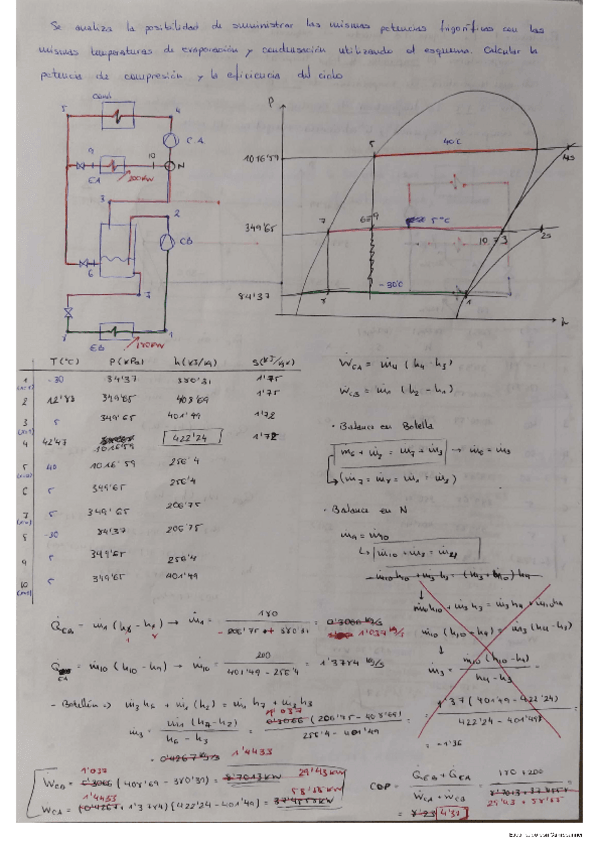 Se analiza la posibilidad de suministrar las mismas potencias frigoríficas con las
mismas temperaturas de evaporación y condensación utilizando el esquema. Calcular la
potencia de compresión y la eficiencia del ciclo
Cond
5
4
CA
9
10
N
EA
200kW
3
2
CB
6
7
8
EB
1
180kW
P
1016'59
349'65
84'37
5
40ºC
4s
7
6≡9
5ºC
10
3
2s
8
-30ºC
1
h
T(ºC) P(kPa) h(kJ/kg) s(kJ/kgK)
1 -30 84'37 380'31 1'75
2 12'83 349'65 408'69 1'75
3 5 349'65 401'49 1'72
4 42'47 1016'59 422'24 1'72
5 40 1016'59 256'4
6 5 349'65 256'4
7 5 349'65 206'75
8 -30 84'37 206'75
9 5 349'65 256'4
10 5 349'65 401'49
ẆCA = ṁ4 (h4 - h3)
ẆCB = ṁ1 (h2 - h1)
· Balance en Botella
ṁ6 + ṁ2 = ṁ7 + ṁ3 → ṁ6 = ṁ3
(ṁ7 = ṁ8 = ṁ1 = ṁ2)
· Balance en N
ṁ9 = ṁ10
ṁ10 + ṁ3 = ṁ4
ṁ10 h10 + ṁ3 h3 = (ṁ3 + ṁ10) h4
ṁ10 h10 + ṁ3 h3 = ṁ3 h4 + ṁ10 h4
ṁ10 (h10 - h4) = ṁ3 (h4 - h3)
ṁ3 = ṁ10 (h10 - h4) / h4 - h3 =
= 1'37 (401'49 - 422'24) / 422'24 - 401'49 =
= -1'36
Q̇EB = ṁ1 (h1 - h8) → ṁ1 = 180 / -206'75 + 380'31 = 1'037 kg/s
Q̇EA = ṁ10 (h10 - h9) → ṁ10 = 200 / 401'49 - 256'4 = 1'3784 kg/s
- Botellín → ṁ3 h6 + ṁ1 (h2) = ṁ1 h7 + ṁ3 h3
ṁ3 = ṁ1 (h7 - h2) / h6 - h3 = 1'037 (206'75 - 408'69) / 256'4 - 401'49 =
= 1'4433
WCB = 1'037 (408'69 - 380'31) = 29'43 kW
WCA = (1'4433 + 1'3784) (422'24 - 401'49) = 58'55 kW
COP = Q̇EB + Q̇EA / ẆCA + ẆCB = 180 + 200 / 29'43 + 58'55 =
= 4'31